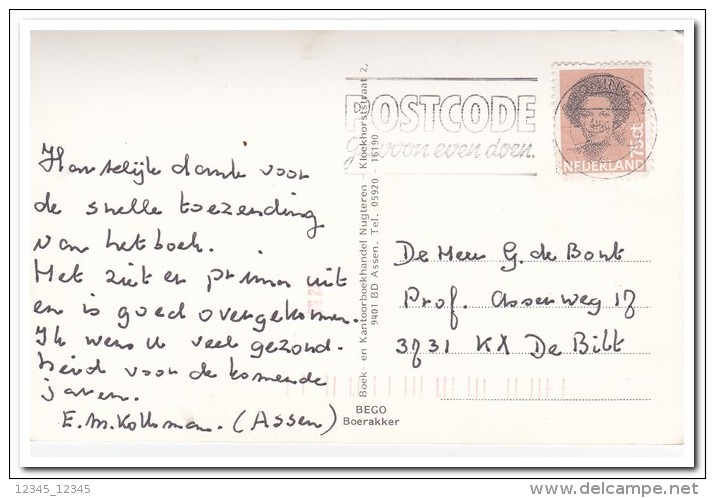 Hartelijk dank voor
de snelle toezending
van het boek.
Het ziet er prima uit
en is goed overgekomen.
Ik wens u veel gezond-
heid voor de komende
jaren.
E.M. Kolkman. (Assen)
Boek - en Kantoorboekhandel Nugteren - Kloekhorststraat 2,
9401 BD Assen. Tel. 05920 - 16190
BEGO
Boerakker
POSTCODE
gewoon even doen.
NEDERLAND
75 ct
De Heer G. de Bont
Prof. Assenweg 17
3731 KX De Bilt
12345_12345
delcampe.net